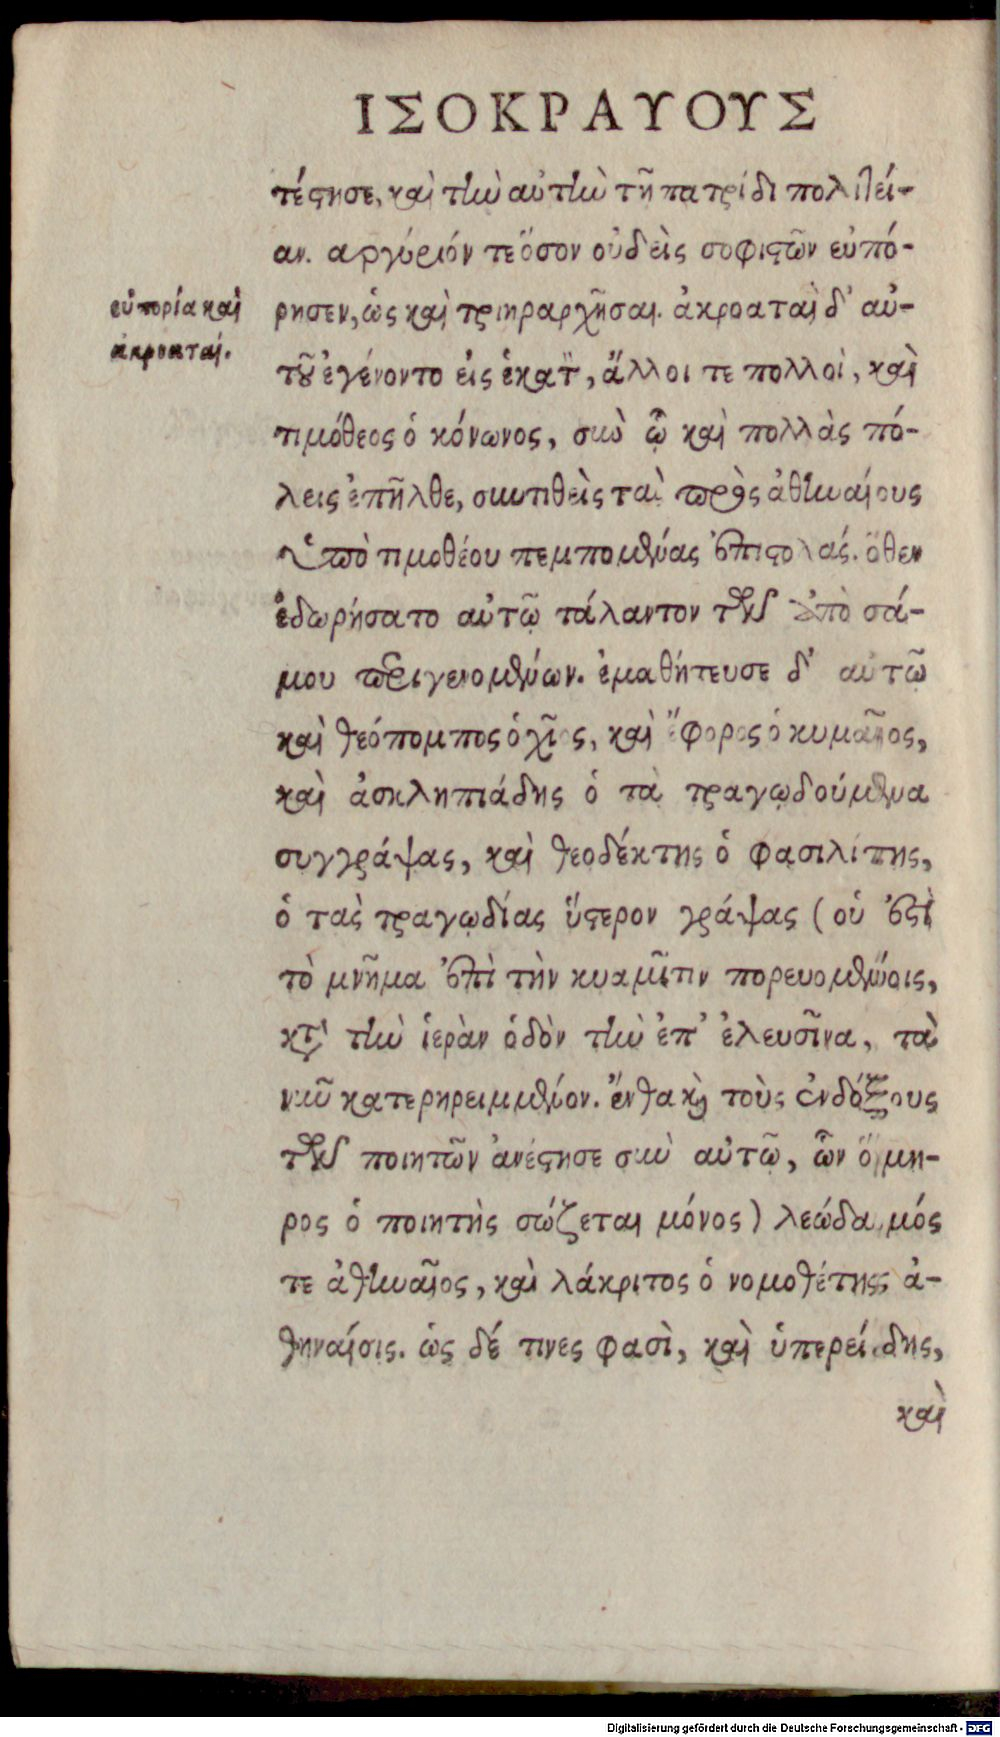 ΙΣΟΚΡΑΥΟΥΣ
τέστησε, καὶ τὴν αὐτὴν τῇ πατρίδι πολιτεί-
αν. αργύριόν τε ὅσον οὐδεὶς σοφιστῶν εὐπό-
εὐπορία καὶ
ρησεν, ὡς καὶ τριηραρχῆσαι. ἀκροαταὶ δ' αὐ-
ἀκροαταί.
τοῦ ἐγένοντο εἰς ἑκατὸν, ἄλλοι τε πολλοὶ, καὶ
τιμόθεος ὁ κόνωνος, σὺν ᾧ καὶ πολλὰς πό-
λεις ἐπῆλθε, συντιθεὶς τὰς πρὸς ἀθηναίους
ὑπὸ τιμοθέου πεμπομένας ἐπιστολάς. ὅθεν
ἐδωρήσατο αὐτῷ τάλαντον τῶν ἀπὸ σά-
μου περιγενομένων. ἐμαθήτευσε δ' αὐτῷ
καὶ θεόπομπος ὁ χῖος, καὶ ἔφορος ὁ κυμαῖος,
καὶ ἀσκληπιάδης ὁ τὰ τραγῳδούμενα
συγγράψας, καὶ θεοδέκτης ὁ φασιλίτης,
ὁ τὰς τραγῳδίας ὕστερον γράψας (οὗ ἐστὶ
τὸ μνῆμα ἐπὶ τὴν κυαμῖτιν πορευομένοις,
κατὰ τὴν ἱερὰν ὁδὸν τὴν ἐπ' ἐλευσῖνα, τὰ
νῦν κατερηρειμμένον. ἔνθα καὶ τοὺς ἐνδόξους
τῶν ποιητῶν ἀνέστησε σὺν αὐτῷ, ὧν ὅμη-
ρος ὁ ποιητὴς σώζεται μόνος) λεώδαμός
τε ἀθηναῖος, καὶ λάκριτος ὁ νομοθέτης ἀ-
θηναίοις. ὡς δέ τινες φασὶ, καὶ ὑπερείδης,
καὶ
Digitalisierung gefördert durch die Deutsche Forschungsgemeinschaft - DFG